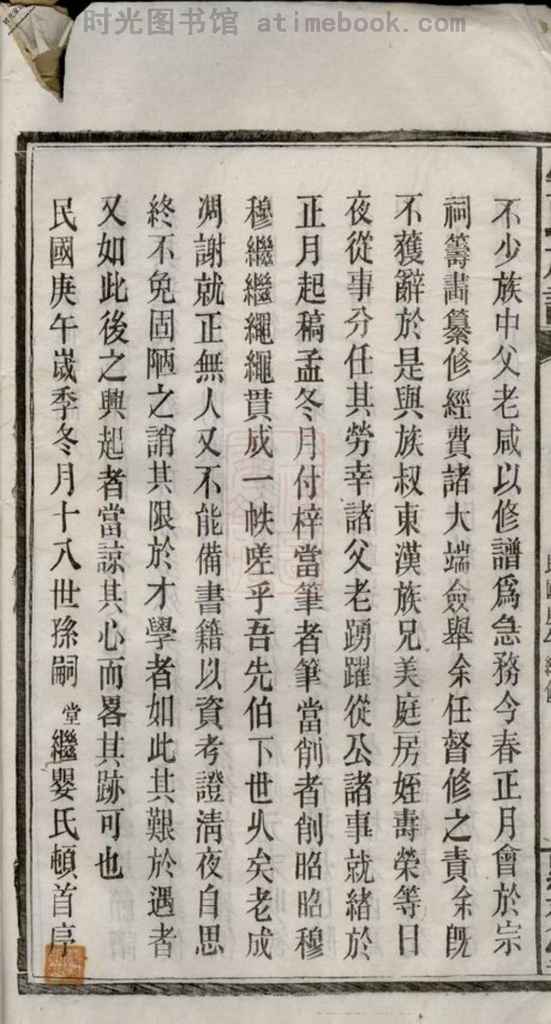 时光图书馆 atimebook.com
不少族中父老咸以修譜爲急務今春正月會於宗
祠籌畵纂修經費諸大端僉舉余任督修之責余旣
不獲辭於是與族叔東漢族兄美庭房姪壽榮等日
夜從事分任其勞幸諸父老踴躍從公諸事就緒於
正月起稿孟冬月付梓當筆者筆當削者削昭昭穆
穆繼繼繩繩貫成一帙嗟乎吾先伯下世乆矣老成
凋謝就正無人又不能備書籍以資考證淸夜自思
終不免固陋之誚其限於才學者如此其艱於遇者
又如此後之興起者當諒其心而畧其跡可也
民國庚午嵗季冬月十八世孫嗣堂繼嬰氏頓首序